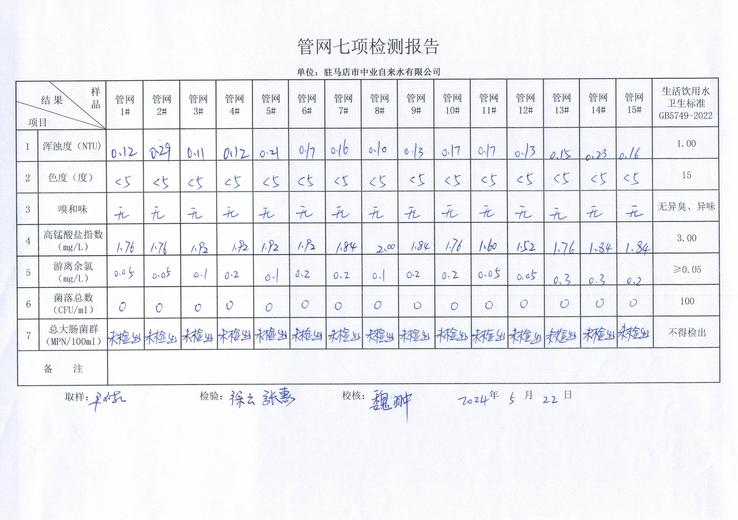 管网七项检测报告
单位：驻马店市中业自来水有限公司
结果 样品 项目 管网1# 管网2# 管网3# 管网4# 管网5# 管网6# 管网7# 管网8# 管网9# 管网10# 管网11# 管网12# 管网13# 管网14# 管网15# 生活饮用水卫生标准GB5749-2022
1 浑浊度（NTU） 0.12 0.29 0.11 0.12 0.21 0.17 0.16 0.10 0.13 0.17 0.17 0.13 0.15 0.23 0.16 1.00
2 色度（度） <5 <5 <5 <5 <5 <5 <5 <5 <5 <5 <5 <5 <5 <5 <5 15
3 嗅和味 无 无 无 无 无 无 无 无 无 无 无 无 无 无 无 无异臭、异味
4 高锰酸盐指数（mg/L） 1.76 1.76 1.92 1.92 1.92 1.92 1.84 2.00 1.84 1.76 1.60 1.52 1.76 1.84 1.84 3.00
5 游离余氯（mg/L） 0.05 0.05 0.1 0.2 0.1 0.2 0.2 0.1 0.2 0.2 0.05 0.05 0.3 0.3 0.2 ≥0.05
6 菌落总数（CFU/ml） 0 0 0 0 0 0 0 0 0 0 0 0 0 0 0 100
7 总大肠菌群（MPN/100ml） 未检出 未检出 未检出 未检出 未检出 未检出 未检出 未检出 未检出 未检出 未检出 未检出 未检出 未检出 未检出 不得检出
备 注
取样： 检验：徐云 张惠 校核：魏翀 2024年 5 月 22 日